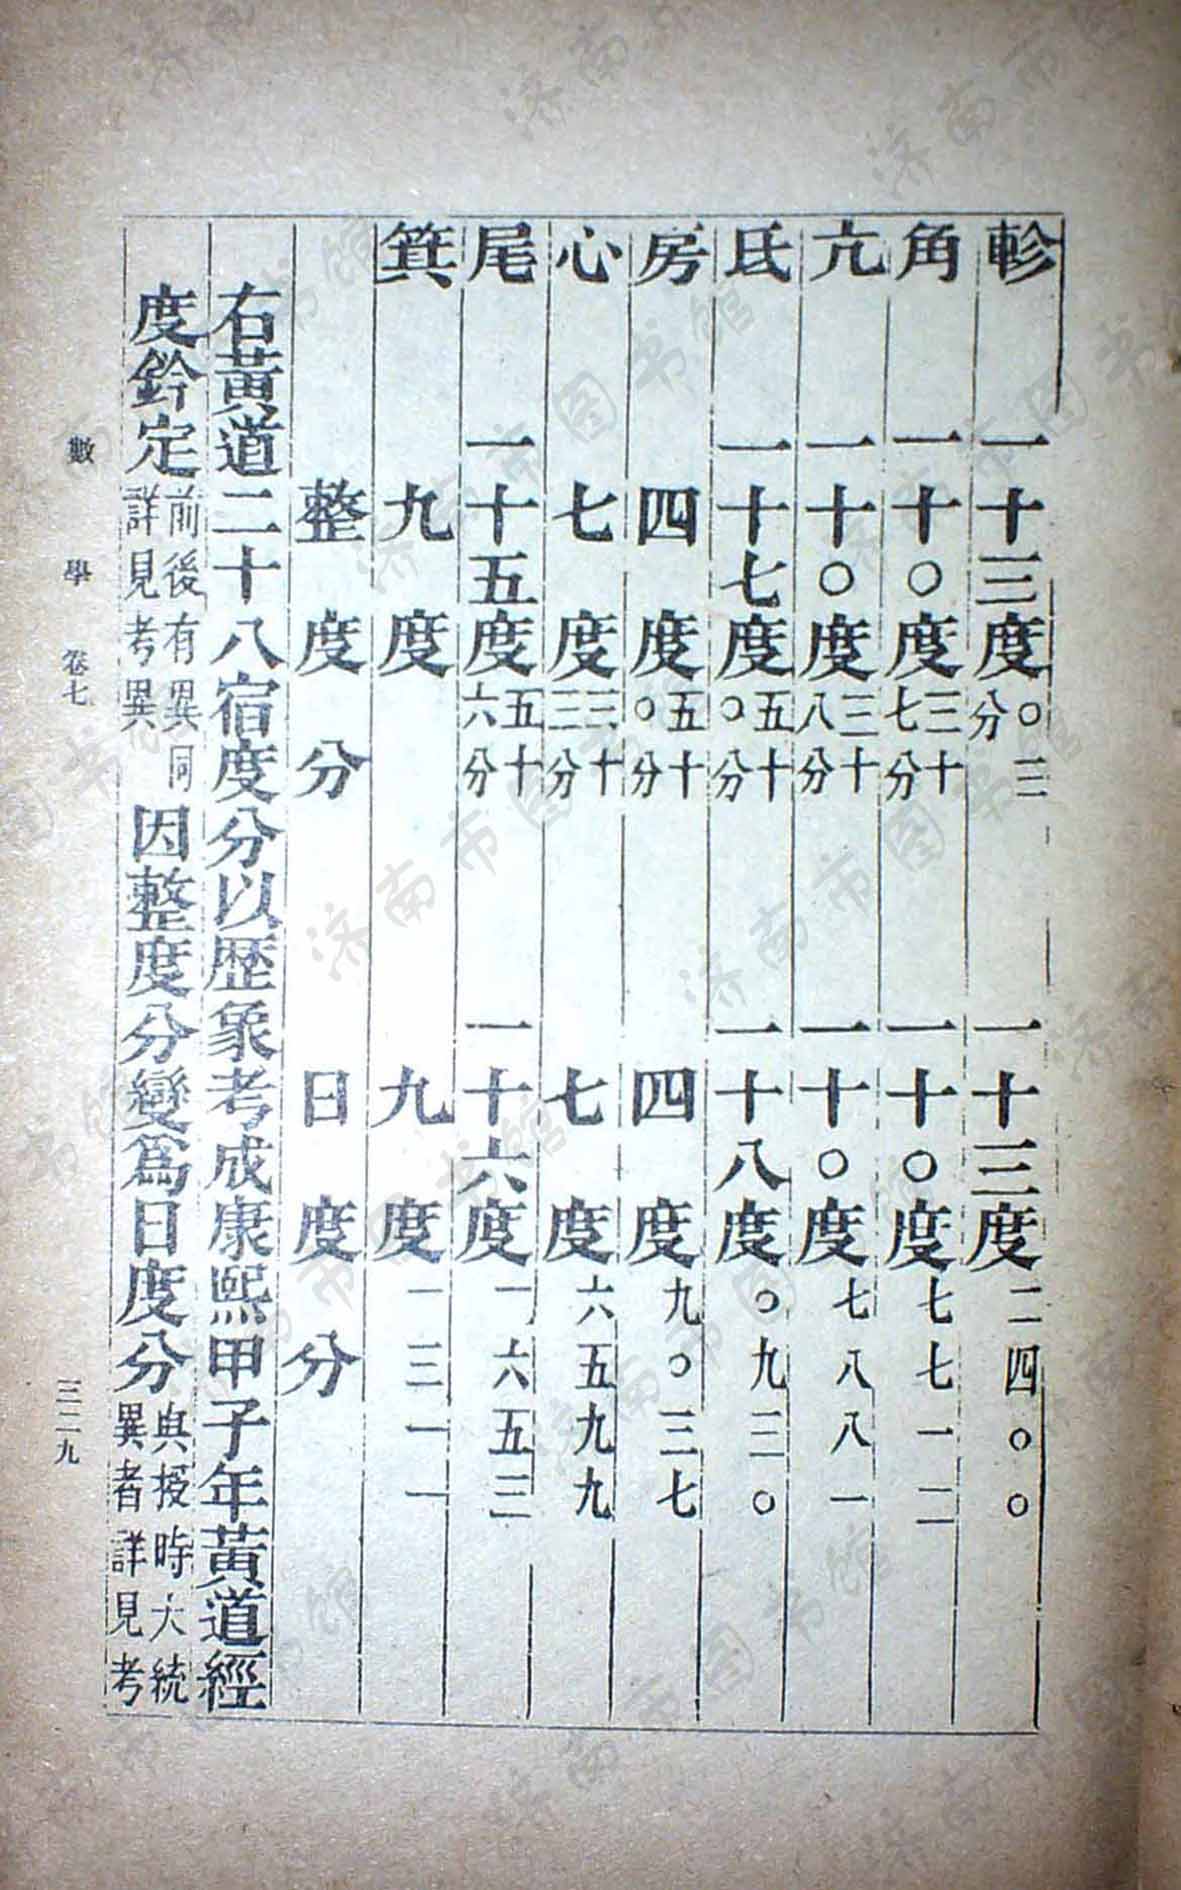 軫 一十三度〇三分 一十三度二四〇〇
角 一十〇度三十七分 一十〇度七七一二
亢 一十〇度三十八分 一十〇度七八八一
氐 一十七度五十〇分 一十八度〇九三〇
房 四度五十〇分 四度九〇三七
心 七度三十三分 七度六五九九
尾 一十五度五十六分 一十六度一六五三
箕 九度 九度一三一一
整度分 日度分
右黃道二十八宿度分以歴象考成康熙甲子年黃道經
度鈐定前後有異同詳見考異因整度分變爲日度分與授時大統異者詳見考
數學 卷七
三二九
济南市图书馆